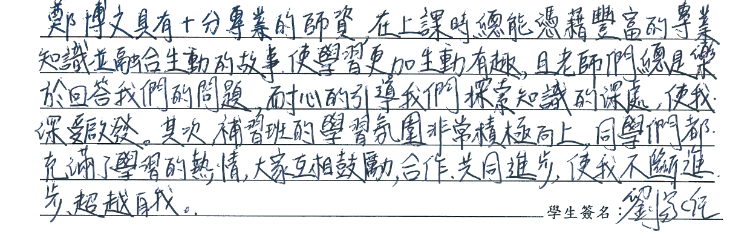 鄭博文具有十分專業的師資,在上課時總能憑藉豐富的專業
知識並融合生動的故事,使學習更加生動有趣,且老師們總是樂
於回答我們的問題,耐心的引導我們探索知識的深處,使我
深受啟發。其次,補習班的學習氛圍非常積極向上,同學們都
充滿了學習的熱情,大家互相鼓勵,合作、共同進步,使我不斷進
步、超越自我。 學生簽名:劉